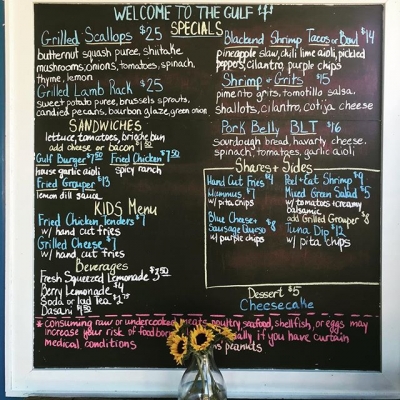 WELCOME TO THE GULF
SPECIALS
Grilled Scallops $25
butternut squash puree, shiitake
mushrooms, onions, tomatoes, spinach,
thyme, lemon
Grilled Lamb Rack $25
sweet potato puree, brussels sprouts,
candied pecans, bourbon glaze, green onion
SANDWICHES
lettuce, tomatoes, brioche bun
add cheese or bacon $1.50
Gulf Burger $7.50 Fried Chicken $7.50
house garlic aioli spicy ranch
Fried Grouper $13
lemon dill sauce
KIDS Menu
Fried Chicken Tenders $7
w/ hand cut fries
Grilled Cheese $7
w/ hand cut fries
Beverages
Fresh Squeezed Lemonade $3.50
Berry Lemonade $4
Soda or Iced Tea $2.75
Dasani
Blackend Shrimp Tacos or Bowl $14
pineapple slaw, chili lime aioli, pickled
peppers, cilantro, purple chips
Shrimp + Grits $15
pimento grits, tomatillo salsa,
shallots, cilantro, cotija cheese
Pork Belly BLT $16
sourdough bread, havarty cheese,
spinach, tomatoes, garlic aioli
Shares + Sides
Hand Cut Fries $4
Hummus $7
w/ pita chips
Blue Cheese +
Sausage Queso $8
w/ purple chips
Peel + Eat Shrimp $9
Mixed Green Salad $5
w/ tomatoes + creamy
balsamic
add Grilled Grouper $8
Tuna Dip $12
w/ pita chips
Dessert $5
Cheesecake
* consuming raw or undercooked meats, poultry, seafood, shellfish, or eggs may
increase your risk of food if you have curtain
medical conditions peanuts